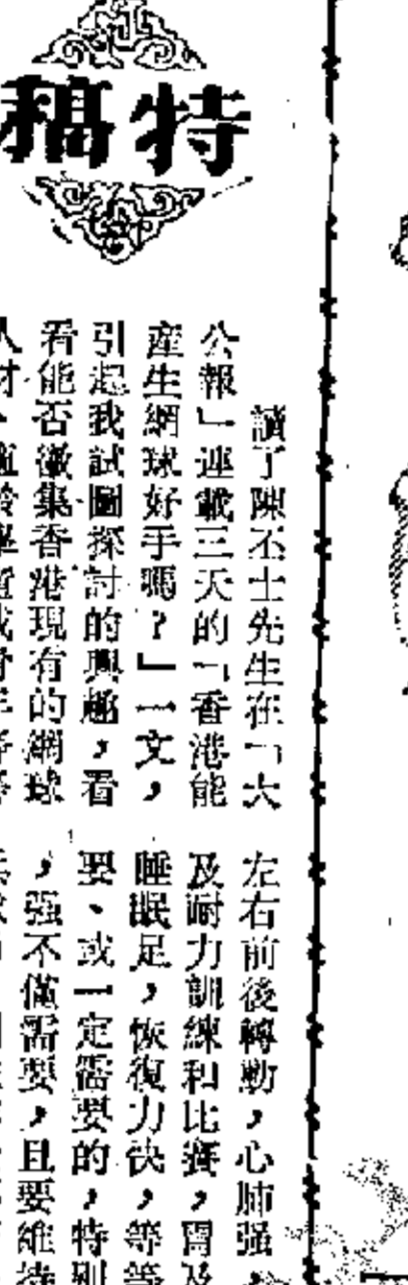 特稿
讀了陳丕士先生在「大
公報」連載三天的「香港能
產生網球好手嗎?」一文,
引起我試圖探討的興趣,看
看能否徵集香港現有的網球
左右前後轉動,心肺强,
及耐力訓練和比賽,胃及
睡眠足,恢復力快,等等
要、或一定需要的,特別
,强不僅需要,且要維持